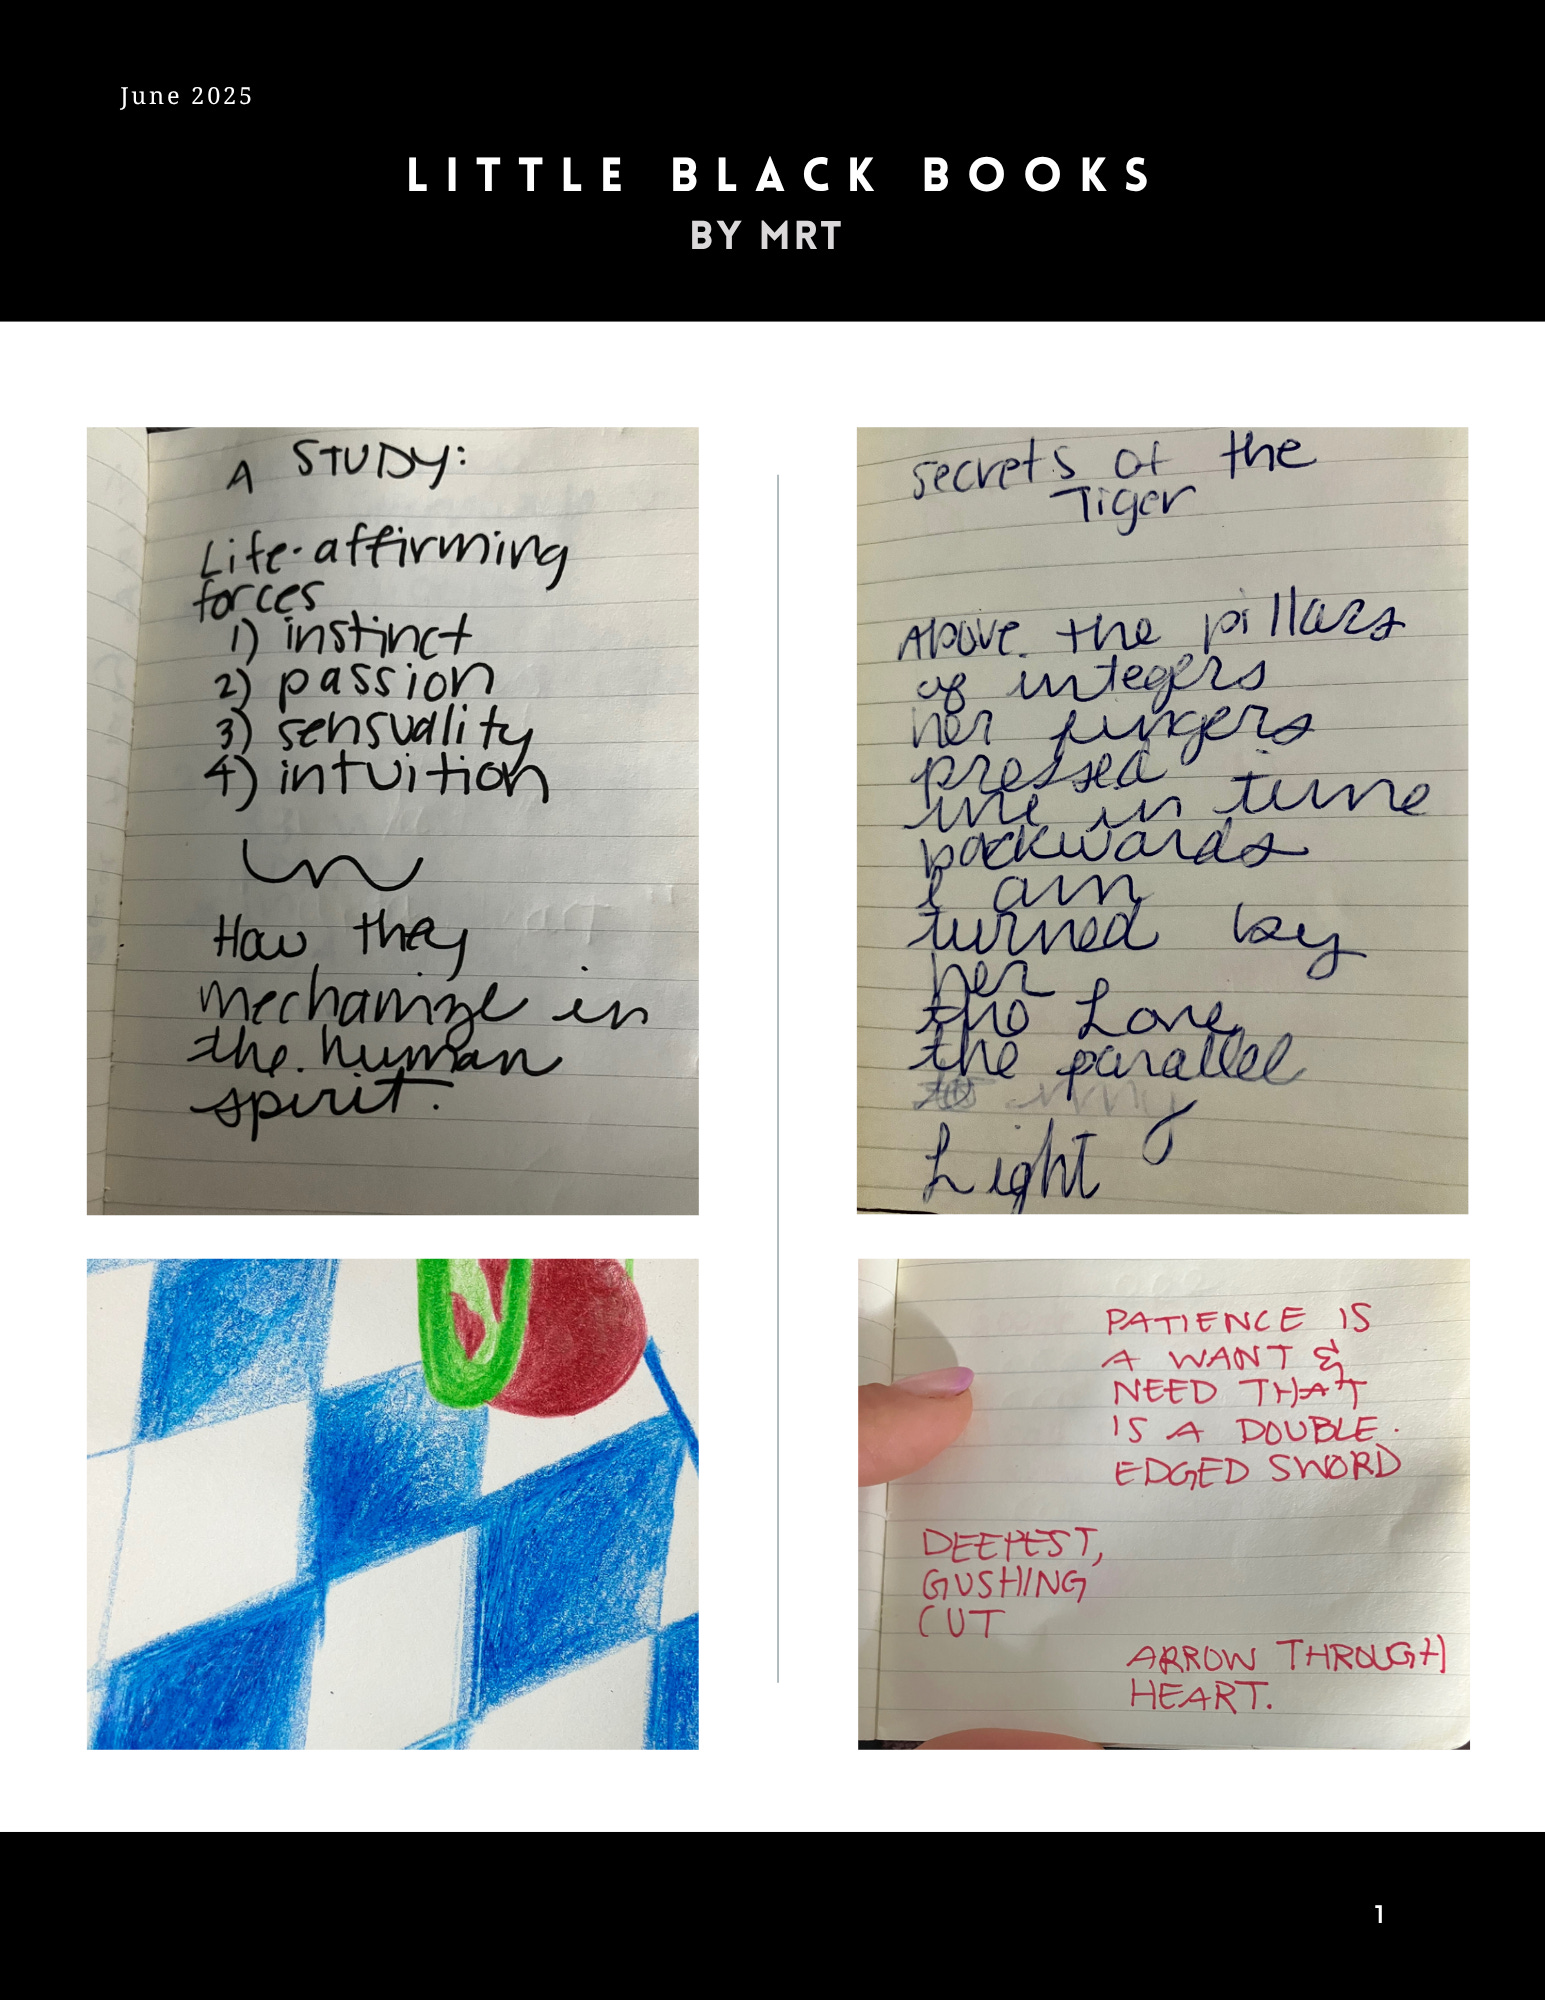 June 2025
LITTLE BLACK BOOKS
BY MRT
A STUDY:
Life-affirming
forces
1) instinct
2) passion
3) sensuality
4) intuition
How they
mechanize in
the human
spirit.
secrets of the
Tiger
Above the pillars
of integers
her fingers
pressed
me in time
backwards
I am
turned by
her
the Love
the parallel
my
Light
PATIENCE IS
A WANT &
NEED THAT
IS A DOUBLE-
EDGED SWORD
DEEPEST,
GUSHING
CUT
ARROW THROUGH
HEART.
1